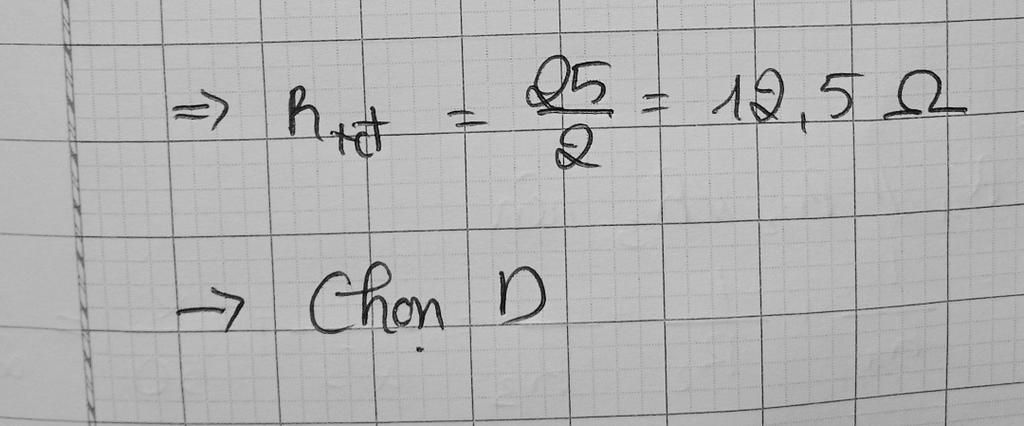 => R_tđ = 25/2 = 12,5 Ω
→ Chọn D